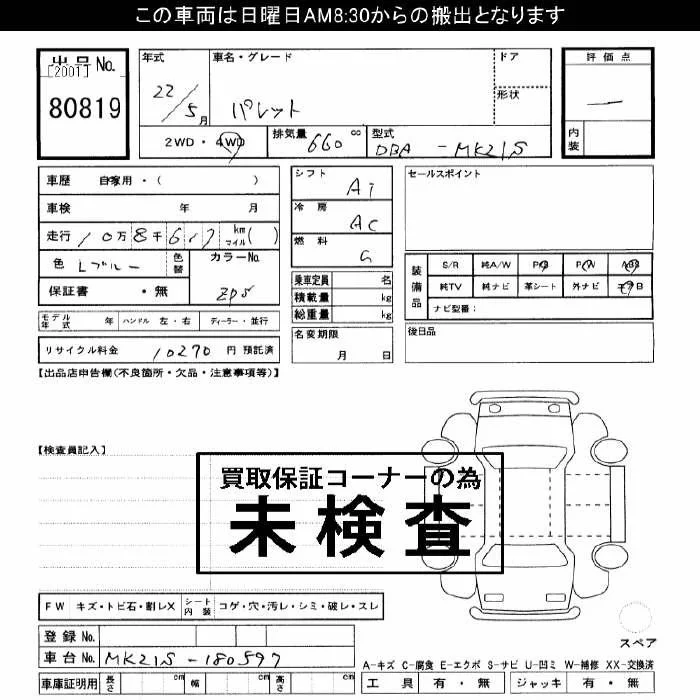 この車両は日曜日AM8:30からの搬出となります
出品No.
[2001]
80819
年式 22/5月
車名・グレード パレット
ドア
形状
2WD・4WD
排気量 660 cc
型式 DBA - MK21S
評価点
内装
車歴 自家用・( )
車検 年 月
走行 10万8千617 km マイル( )
色 Lブルー 色替
カラーNo. ZPS
保証書 ・無
モデル年式 年 ハンドル 左・右 ディーラー・並行
リサイクル料金 10270 円 預託済
シフト AT
冷房 AC
燃料 G
乗車定員 名
積載量 kg
総重量 kg
名変期限 月 日
セールスポイント
装備品 S/R 純A/W P/S P/W ABS
純TV 純ナビ 革シート 外ナビ エアB
ナビ型番:
後日品
【出品店申告欄(不良箇所・欠品・注意事項等)】
【検査員記入】
買取保証コーナーの為
未検査
FW キズ・トビ石・割レX シート内装 コゲ・穴・汚レ・シミ・破レ・スレ
登録No.
車台No. MK21S-180597
車庫証明用 長さ cm 幅 cm 高さ cm
スペア
A-キズ C-腐食 E-エクボ S-サビ U-凹ミ W-補修 XX-交換済
工具 有・無 ジャッキ 有・無